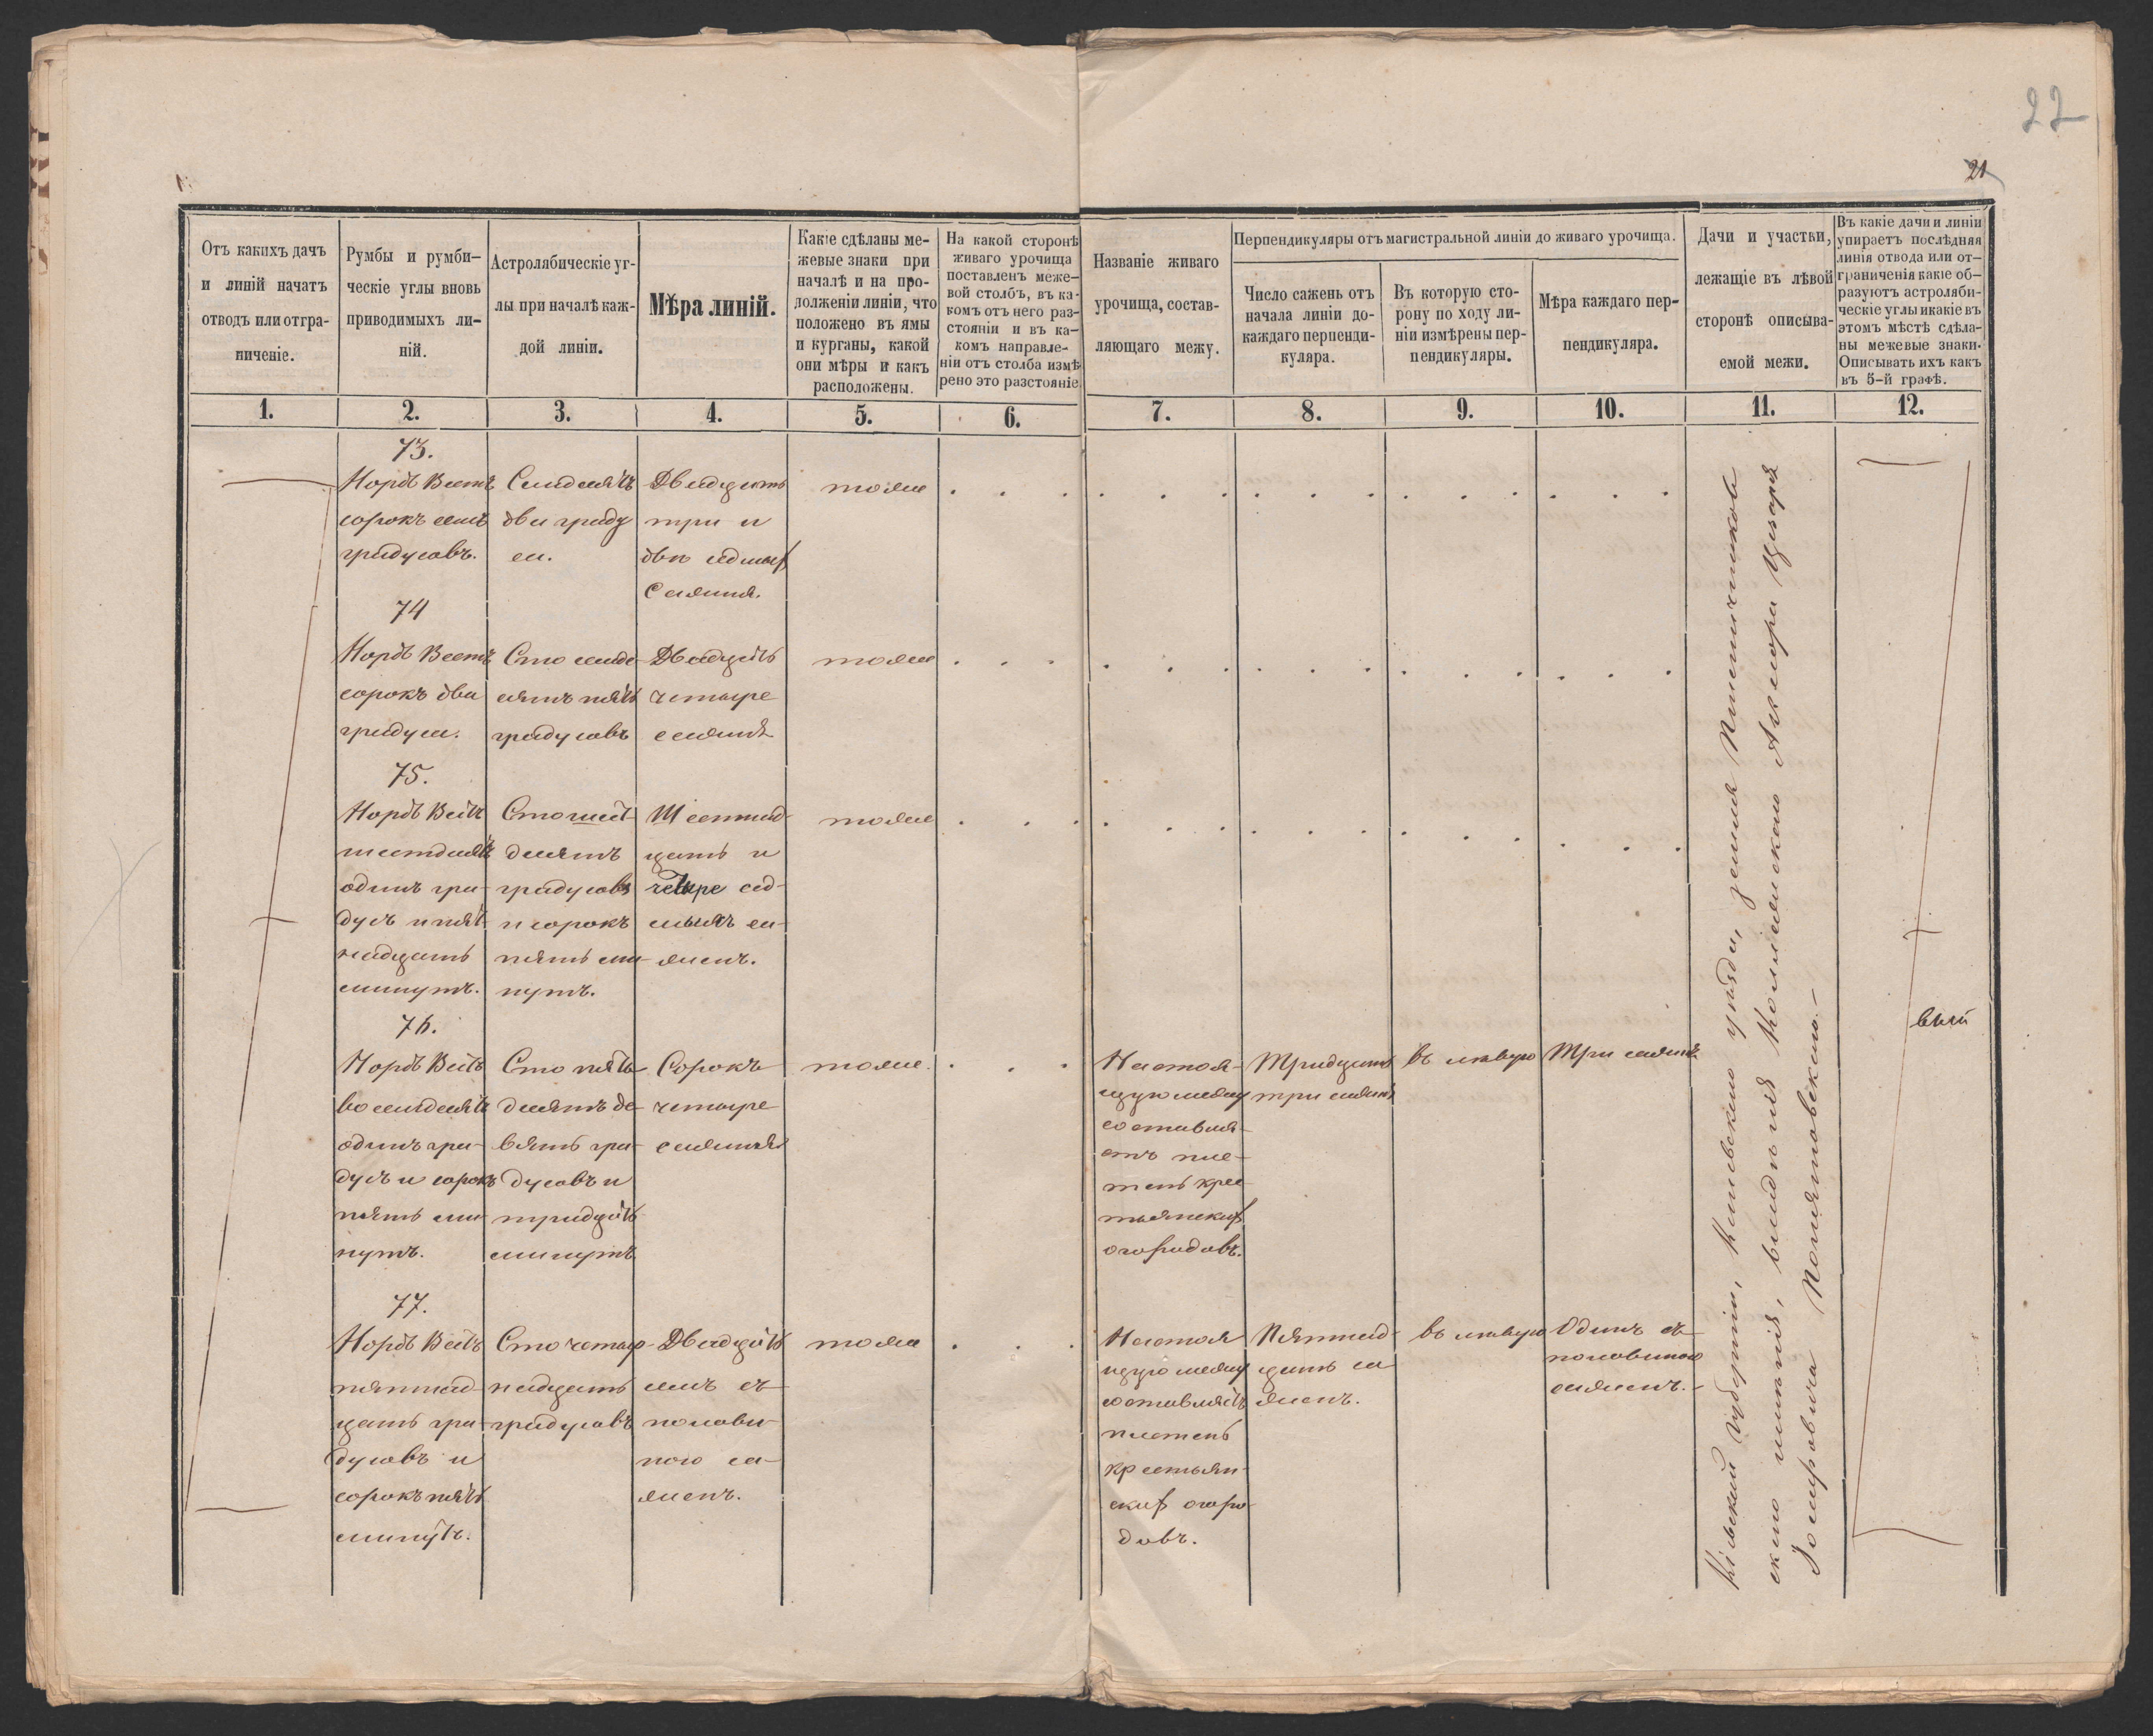 22
21
Отъ какихъ дачъ
и линій начатъ
отводъ или отгра-
ниченіе.
Румбы и румби-
ческіе углы вновь
приводимыхъ ли-
ній.
Астролябическіе уг-
лы при началѣ каж-
дой линіи.
Мѣра линій.
Какіе сдѣланы ме-
жевые знаки при
началѣ и на про-
долженіи линіи, что
положено въ ямы
и курганы, какой
они мѣры и какъ
расположены.
На какой сторонѣ
живаго урочища
поставленъ меже-
вой столбъ, въ ка-
комъ отъ него раз-
стояніи и въ ка-
комъ направле-
ніи отъ столба измѣ
рено это разстояніе
Названіе живаго
урочища, состав-
ляющаго межу.
Перпендикуляры отъ магистральной линіи до живаго урочища.
Число сажень отъ
начала линіи до-
каждаго перпенди-
куляра.
Въ которую сто-
рону по ходу ли-
ніи измѣрены пер-
пендикуляры.
Мѣра каждаго пер-
пендикуляра.
Дачи и участки,
лежащіе въ лѣвой
сторонѣ описыва-
емой межи.
Въ какіе дачи и линіи
упираетъ послѣдняя
линія отвода или от-
граниченія какіе об-
разуютъ астроляби-
ческіе углы и какіе въ
этомъ мѣстѣ сдѣла-
ны межевые знаки.
Описывать ихъ какъ
въ 5-й графѣ.
1. 2. 3. 4. 5. 6. 7. 8. 9. 10. 11. 12.
73.
Нордъ Вестъ
сорокъ семь
градусовъ.
Семдесятъ
два граду
са.
Двадцать
три и
двѣ седмых
Сажня.
тоже
74
Нордъ Вестъ
сорокъ два
градуса.
Сто семде
сятъ пять
градусовъ
Двадцать
четыре
сажня
тоже
75.
Нордъ Вестъ
шестдесятъ
одинъ гра-
дусъ и пят-
надцать
минутъ.
Сто шест-
десятъ
градусовъ
и сорокъ
пять ми-
нутъ.
Шестнад-
цать и
четыре сед-
мыхъ са-
женъ.
тоже
76.
Нордъ Вестъ
восемдесятъ
одинъ гра-
дусъ и сорокъ
пять ми-
нутъ.
Сто пять
десятъ де-
вять гра-
дусовъ и
тридцать
минутъ
Сорокъ
четыре
сажня
тоже.
Настоя-
щую межу
составля-
етъ пле-
тень крес
тьянских
огородовъ.
Тридцать
три сажня
въ лѣвую
Три сажня
77.
Нордъ Вестъ
пятнад-
цать гра-
дусовъ и
сорокъ пять
минутъ.
Сто четыр-
надцать
градусовъ
Двадцать
семь съ
полови-
ною са-
женъ.
тоже
Настоя
щую межу
составляетъ
плетень
крестьян-
ских огоро-
довъ.
Пятнад-
цать са
женъ.
въ лѣвую
Одинъ съ
половиною
саженъ.
Кіевской губерніи, Каневскаго уѣзда, земля Пшеничниковс
каго имѣнія, владѣнія Коллежскаго Ассесора Цезаря
Понятовскаго.